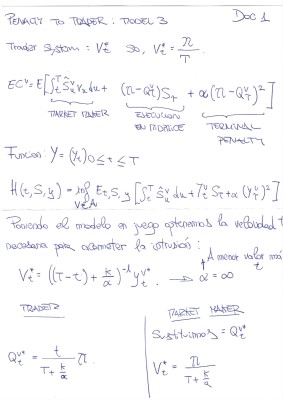 PENALTY TO TRADER : MODEL 3 DOC 1
Trader System : V_t^* so, V_t^* = π/T.
EC^v = E[∫_t^T Ŝ_u^v v_u du + (π - Q_T^v) S_T + α(π - Q_T^v)^2]
MARKET MAKER EJECUCION EN MIDPRICE TERMINAL PENALTY
Funcion: Y = (Y_t) 0 ≤ t ≤ T
H(t, S, y) = inf E_{t,S,y} [∫_t^T Ŝ_u^v du + Y_T^v S_T + α (Y_T^v)^2]
Poniendo el modelo en juego obtenemos la velocidad
necesaria para acometer la intrusión :
V_t^* = ((T - t) + k/α)^-1 y_t^{v*}. → α = ∞
A menor valor más
t
TRADER MARKET MAKER
Sustituimos = Q_t^{v*}
Q_t^{v*} = t/(T + k/α) π. V_t^* = π/(T + k/α)